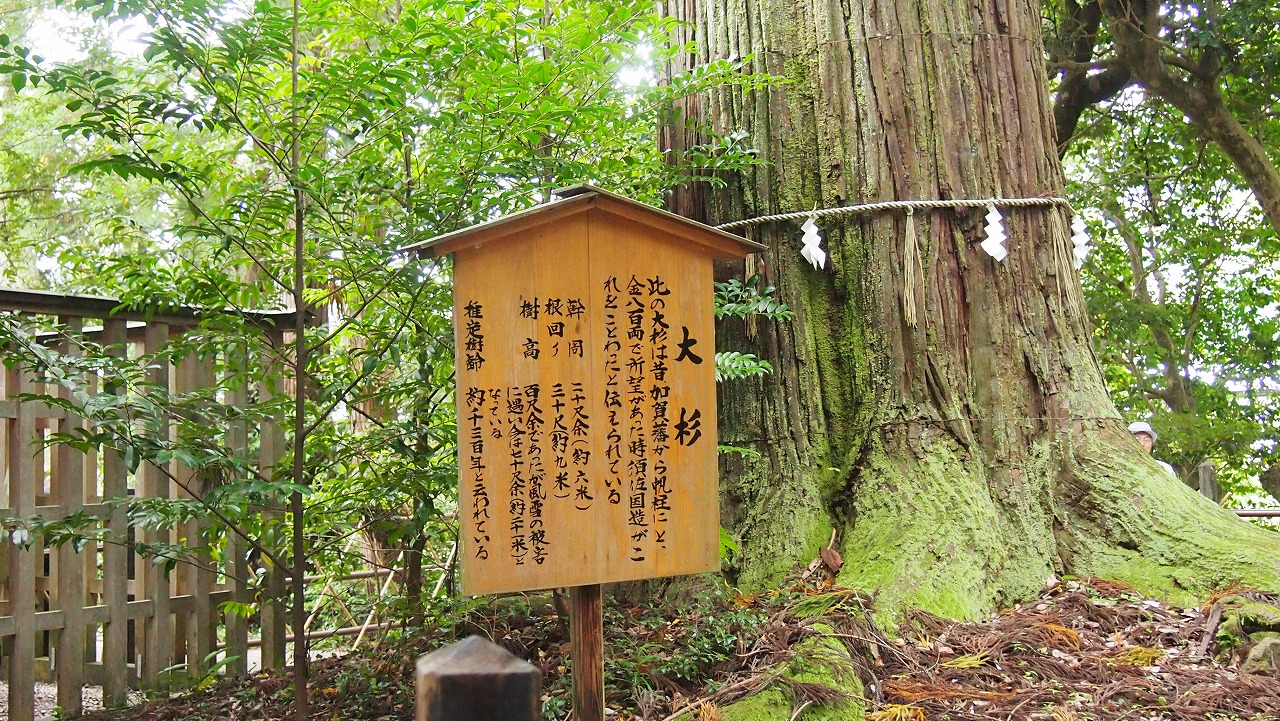 大杉
此の大杉は昔加賀藩から帆柱にと、
金八百両で所望があった時須佐国造がこ
れをことわったと伝えられている
幹周 二十尺余(約六米)
根回り 三十尺(約九米)
樹高 百尺余であったが風雪の被害
に遇い今は七十尺余(約二十一米)と
なっている
推定樹齢 約千三百年と云われている